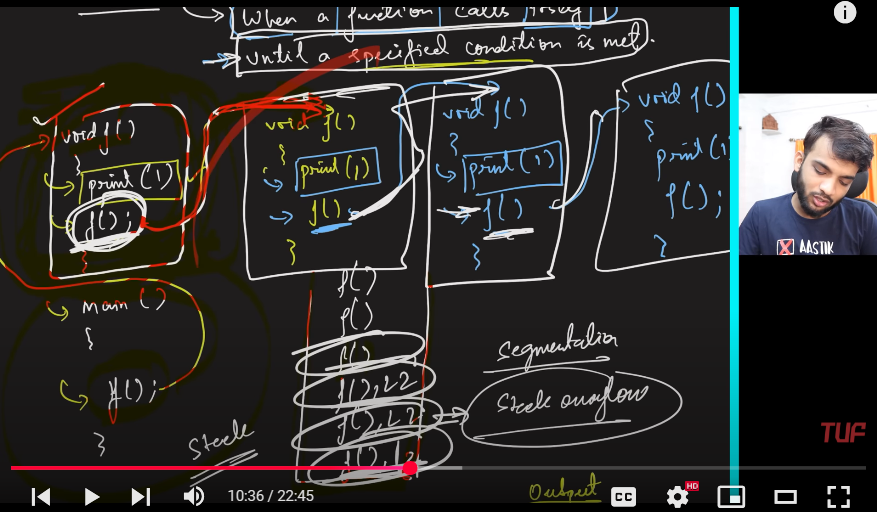 When a function calls itself
until a specified condition is met.
void f()
{
print(1)
f();
}
void f()
{
print(1)
f()
}
void f()
{
print(1)
f()
}
void f()
{
print(1
f();
}
main()
{
f();
}
f()
f()
f()
f(), L2
f(), L2
f(), L2
Segmentation
Stack overflow
Stack
Output
AASTIK
TUF
10:36 / 22:45
CC
HD
i